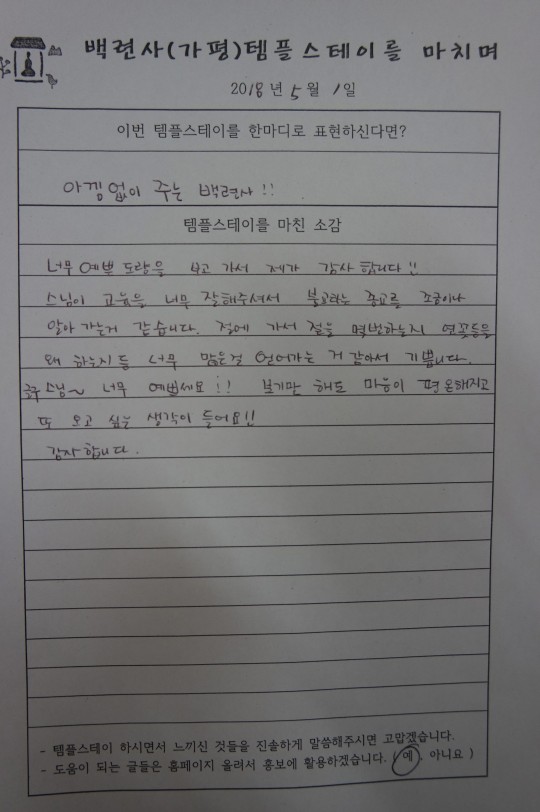 백련사(가평)템플스테이를 마치며
2018년 5월 1일
이번 템플스테이를 한마디로 표현하신다면?
아낌없이 주는 백련사!!
템플스테이를 마친 소감
너무 예쁜 도량을 보고 가서 제가 감사합니다!!
스님이 교육을 너무 잘해주셔서 불교라는 종교를 조금이나
알아가는거 같습니다. 절에 가서 절을 몇번하는지 연꽃등을
왜 하는지 등 너무 많은걸 얻어가는 거 같아서 기쁩니다.
스님~ 너무 예쁘세요!! 보기만 해도 마음이 편온해지고
또 오고 싶은 생각이 들어요!!
감사합니다.
- 템플스테이 하시면서 느끼신 것들을 진솔하게 말씀해주시면 고맙겠습니다.
- 도움이 되는 글들은 홈페이지 올려서 홍보에 활용하겠습니다. ( 예, 아니요 )